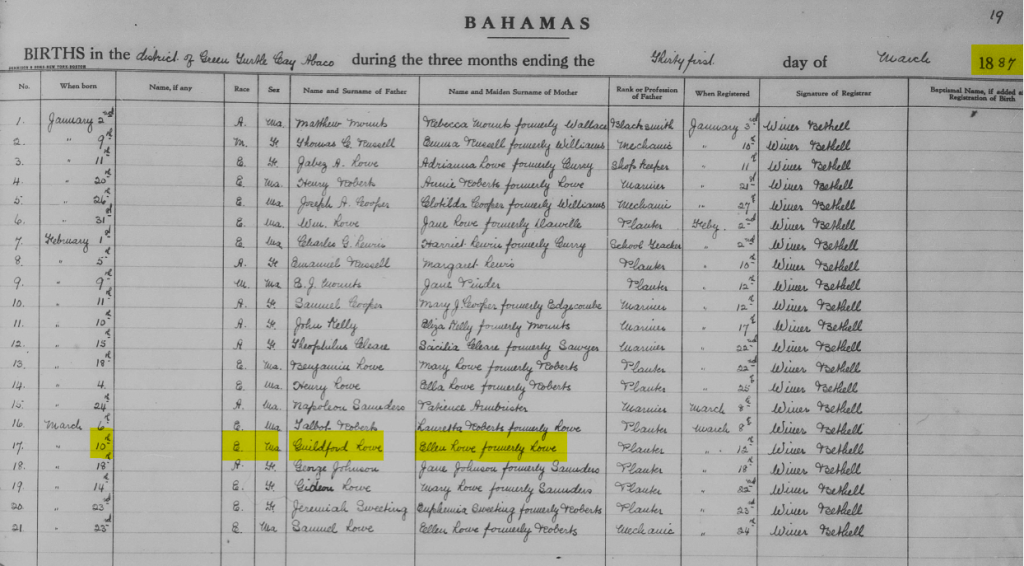 19
BAHAMAS
BIRTHS in the district of Green Turtle Cay Abaco during the three months ending the Thirty first day of March 1887
No. When born Name, if any Race Sex Name and Surname of Father Name and Maiden Surname of Mother Rank or Profession of Father When Registered Signature of Registrar Baptismal Name, if added a Registration of Birth
1. January 2nd A. Ma Matthew Mounts Rebecca Mounts formerly Wallace Blacksmith January 3rd Winer Bethell
2. " 9th M. Fr Thomas G. Russell Emma Russell formerly Williams Mechanic " 10th Winer Bethell
3. " 11th E. Fr. Jabez A. Lowe Adrianna Lowe formerly Curry Shop Keeper " 11th Winer Bethell
4. " 20th E. Ma. Henry Roberts Annie Roberts formerly Lowe Mariner " 21st Winer Bethell
5. " 26th E. Ma. Joseph A. Cooper Clotilda Cooper formerly Williams Mechanic " 27th Winer Bethell
6. " 31st E. Ma. Wm. Lowe Jane Lowe formerly Planter Feby. 2nd Winer Bethell
7. February 1st E. Ma Charles G. Lewis Harriet Lewis formerly Curry School Teacher " 2nd Winer Bethell
8. " 5th A. Fr. Emanuel Russell Margaret Lewis Planter " 10th Winer Bethell
9. " 9th M. Ma B.J. Mounts Jane Pinder Planter " 12th Winer Bethell
10. " 11th A. Fr. Samuel Cooper Mary J Cooper formerly Edgecombe Mariner " 12th Winer Bethell
11. " 10th A. Fr. John Kelly Eliza Kelly formerly Mounts Mariner " 17th Winer Bethell
12. " 15th A Fr. Theophulus Cleare Sicilia Cleare formerly Sawyer Mariner " 22nd Winer Bethell
13. " 18th E. Ma. Benjamin Lowe Mary Lowe formerly Roberts Planter " 22nd Winer Bethell
14. " 4. E. Ma. Henry Lowe Ella Lowe formerly Roberts Planter " 25th Winer Bethell
15. " 24th A. Ma. Napoleon Saunders Patience Armbrister Mariner March 8th Winer Bethell
16. March 6th E. Ma Talbot Roberts Lauretta Roberts formerly Lowe Planter March 8th Winer Bethell
17. " 10th E. Ma Guildford Lowe Ellen Lowe formerly Lowe Planter " 12th Winer Bethell
18. " 18th A. Fr. George Johnson Jane Johnson formerly Saunders Planter " 18th Winer Bethell
19. " 14th E. Fr. Gideon Lowe Mary Lowe formerly Saunders Planter " 22nd Winer Bethell
20. " 23rd E. Fr Jeremiah Sweeting Euphemia Sweeting formerly Roberts Planter " 23rd Winer Bethell
21. " 23rd E Ma Samuel Lowe Ellen Lowe formerly Roberts Mechanic " 24th Winer Bethell